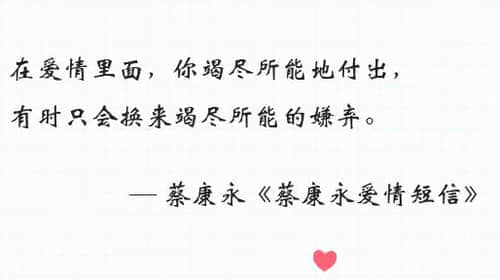 在爱情里面，你竭尽所能地付出，
有时只会换来竭尽所能的嫌弃。
— 蔡康永《蔡康永爱情短信》